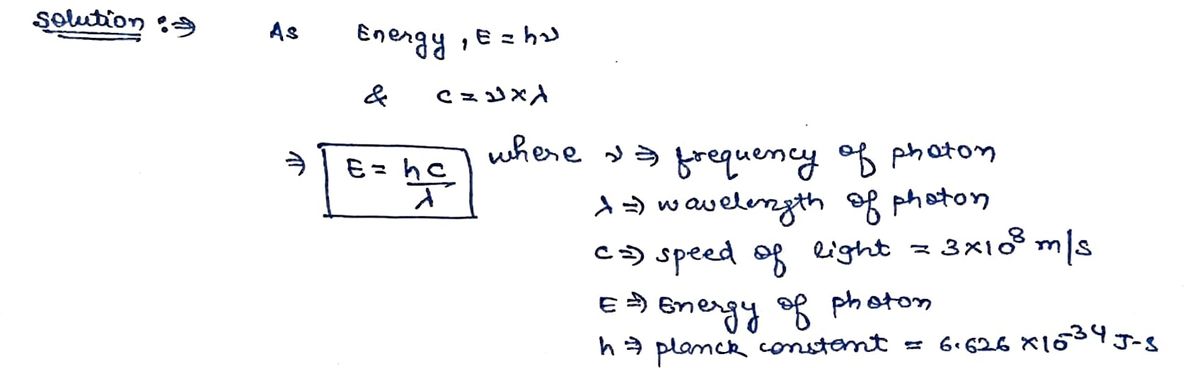 Solution :⇒ As Energy, E = hν
& c = ν×λ
⇒ E = hc/λ where ν ⇒ frequency of photon
λ ⇒ wavelength of photon
c ⇒ speed of light = 3×10⁸ m/s
E ⇒ Energy of photon
h ⇒ planck constant = 6.626 ×10⁻³⁴ J-s